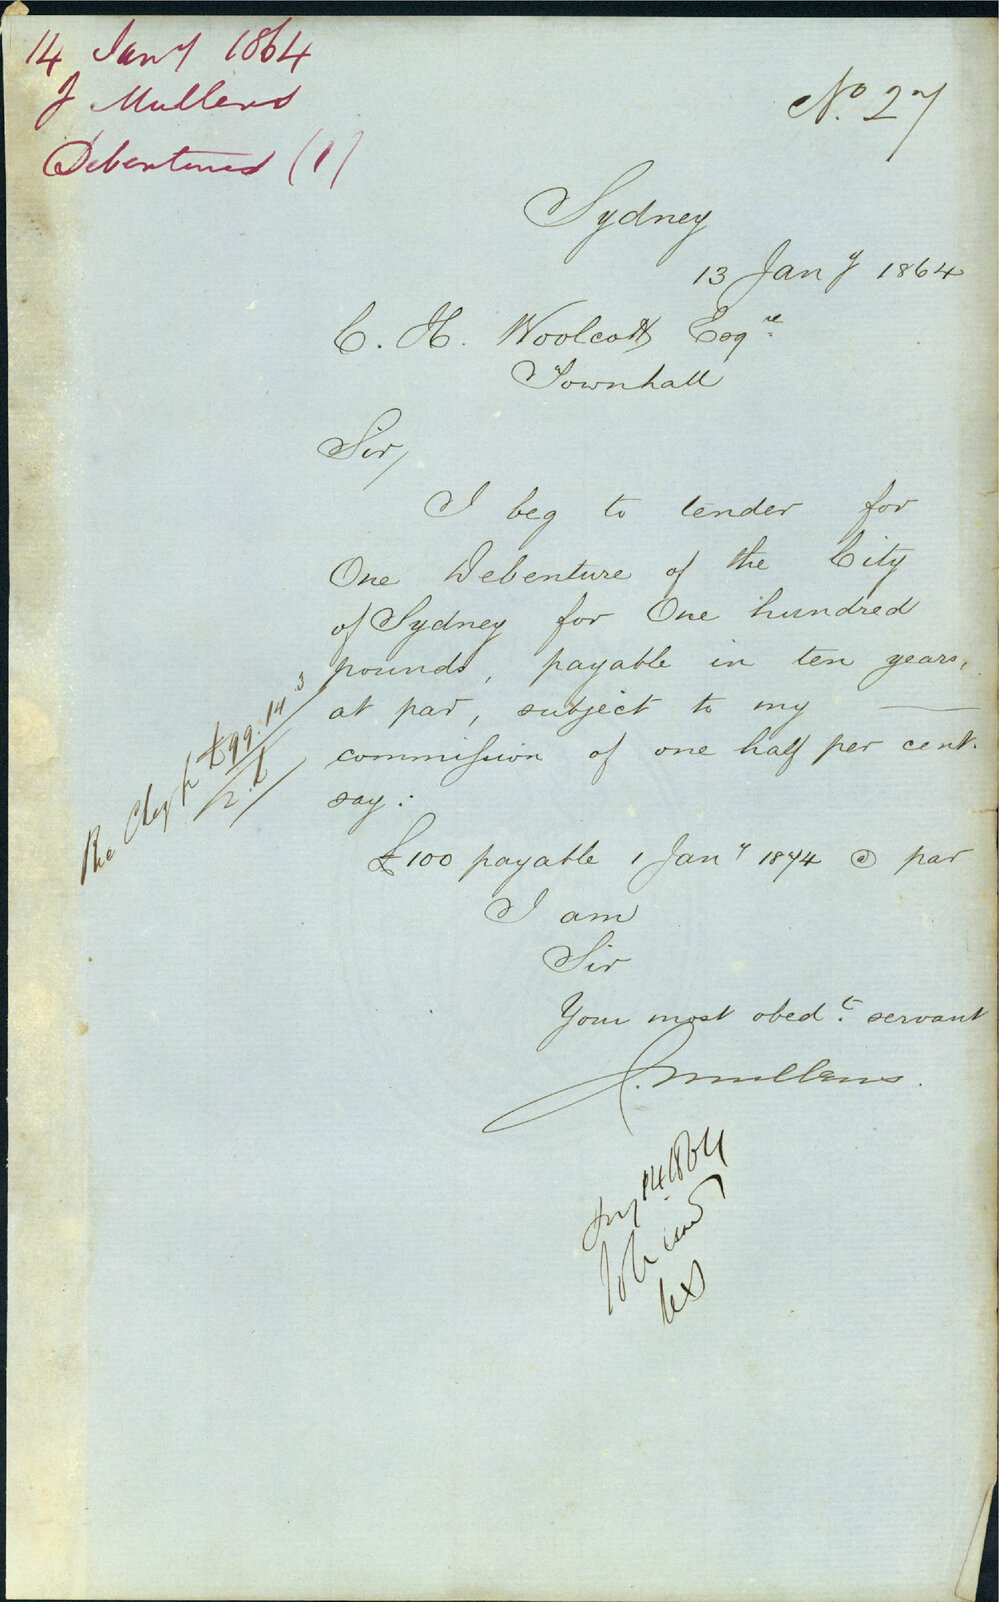 14 Jany 1864
J Mullens
Debentures (1)
No. 27
Sydney
13 Jany 1864
C. H. Woolcott Esqre
Townhall
Sir,
I beg to tender for
One Debenture of the City
of Sydney for One hundred
pounds, payable in ten years,
at par, subject to my ——
commission of one half per cent.
say:
£100 payable 1 Jany 1874 @ par
I am
Sir
Your most obedt. servant
J. Mullens.
£99.14.3
14.1864